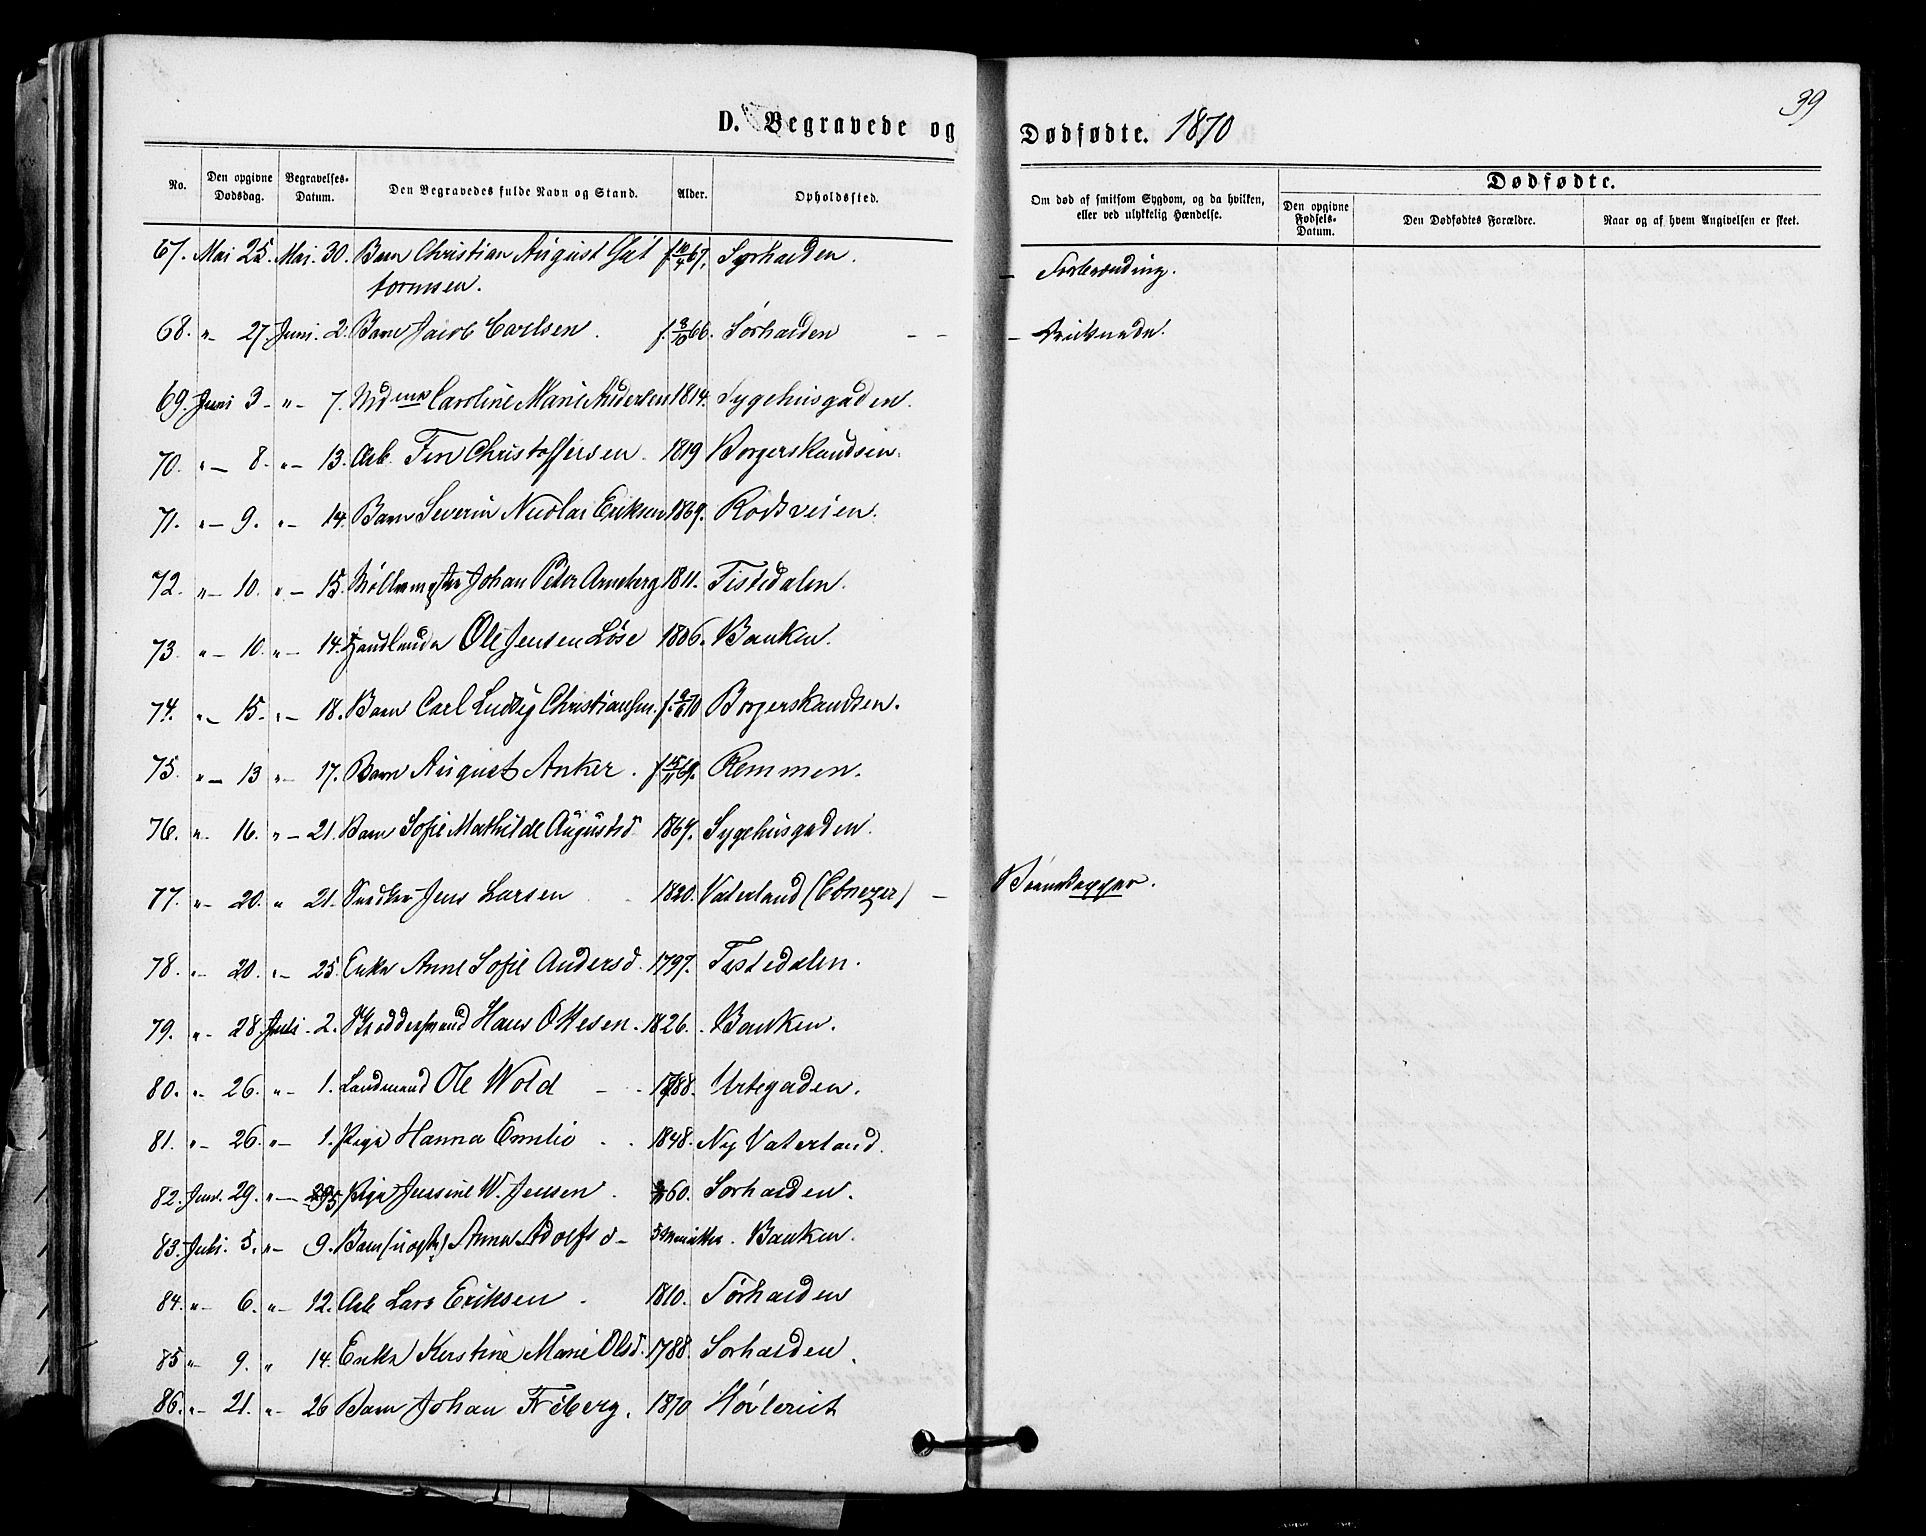 39
D. Begravede og Dødfødte. 1870
No. Den opgivne Dødsdag. Begravelses-Datum. Den Begravedes fulde Navn og Stand. Alder. Opholdssted. Om død af smitsom Sygdom, og da hvilken, eller ved ulykkelig Hændelse. Dødfødte.
Den opgivne Fødsels-Datum. Den Dødfødtes Forældre. Naar og af hvem Angivelsen er skeet.
67. Mai 25. Mai. 30. Barn Christian August Gut f 10/4 67. Sørhalden. - Forbrænding.
tormsen.
68. " - 27. Juni. 2. Barn Jacob Carlsen. f. 66. Sørhalden - - -
69. Juni 3 - " - 7. Caroline Marie Andersen 1814. Sygehusgaden.
70. " - 8. " - 13. Arb. Fin Christoffersen. 1819 Borgerskandsen.
71. " - 9. " - 14. Barn Severin Nicolai Eriksen 1869. Rødsveien.
72. " - 10. " - 15. Møllemester Johan Peter Arneberg 1811. Tistedalen.
73. " - 10. " - 14. Handlende Ole Jensen Løse 1806. Banken.
74. " - 15. " - 18. Barn Carl Ludvig Christiansen. f. 9/6 70 Borgerskandsen.
75. " - 13 " - 17. Barn August Anker. f 15/11 69. Remmen.
76. " 16. " - 21. Barn Sofie Mathilde Augustsd. 1867. Sygehusgaden.
77. " - 20. " 21. Snedker Jens Larsen - 1820. Vaterland (Ebnezer) - Børnekopper.
78. " - 20. " - 25. Enke Anne Sofie Andersd. 1797. Tistedalen.
79. " - 28. Juli - 2. Hans Ottesen. 1826. Banken.
80. " - 26. " - 1. Landmand Ole Wold - - 1788. Urtegaden.
81. " - 26. " - 1. Pige Hanna Emilie . . 1848. Ny Vaterland.
82. Juni. 29. " - 5 Pige Jensine W. Jensen. 60. Sørhalden.
83. Juli. 5. " - 9. Barn (uægte) Anna Adolfsd - Banken.
84. " - 6. " - 12. Arb Lars Eriksen - 1810. Sørhalden
85 " - 9. " 14. Enke Kerstine Marie Olsd. 1788. Sørhalden.
86. " - 21. " - 26 Barn Johan Friberg. 1870 Høvleriet